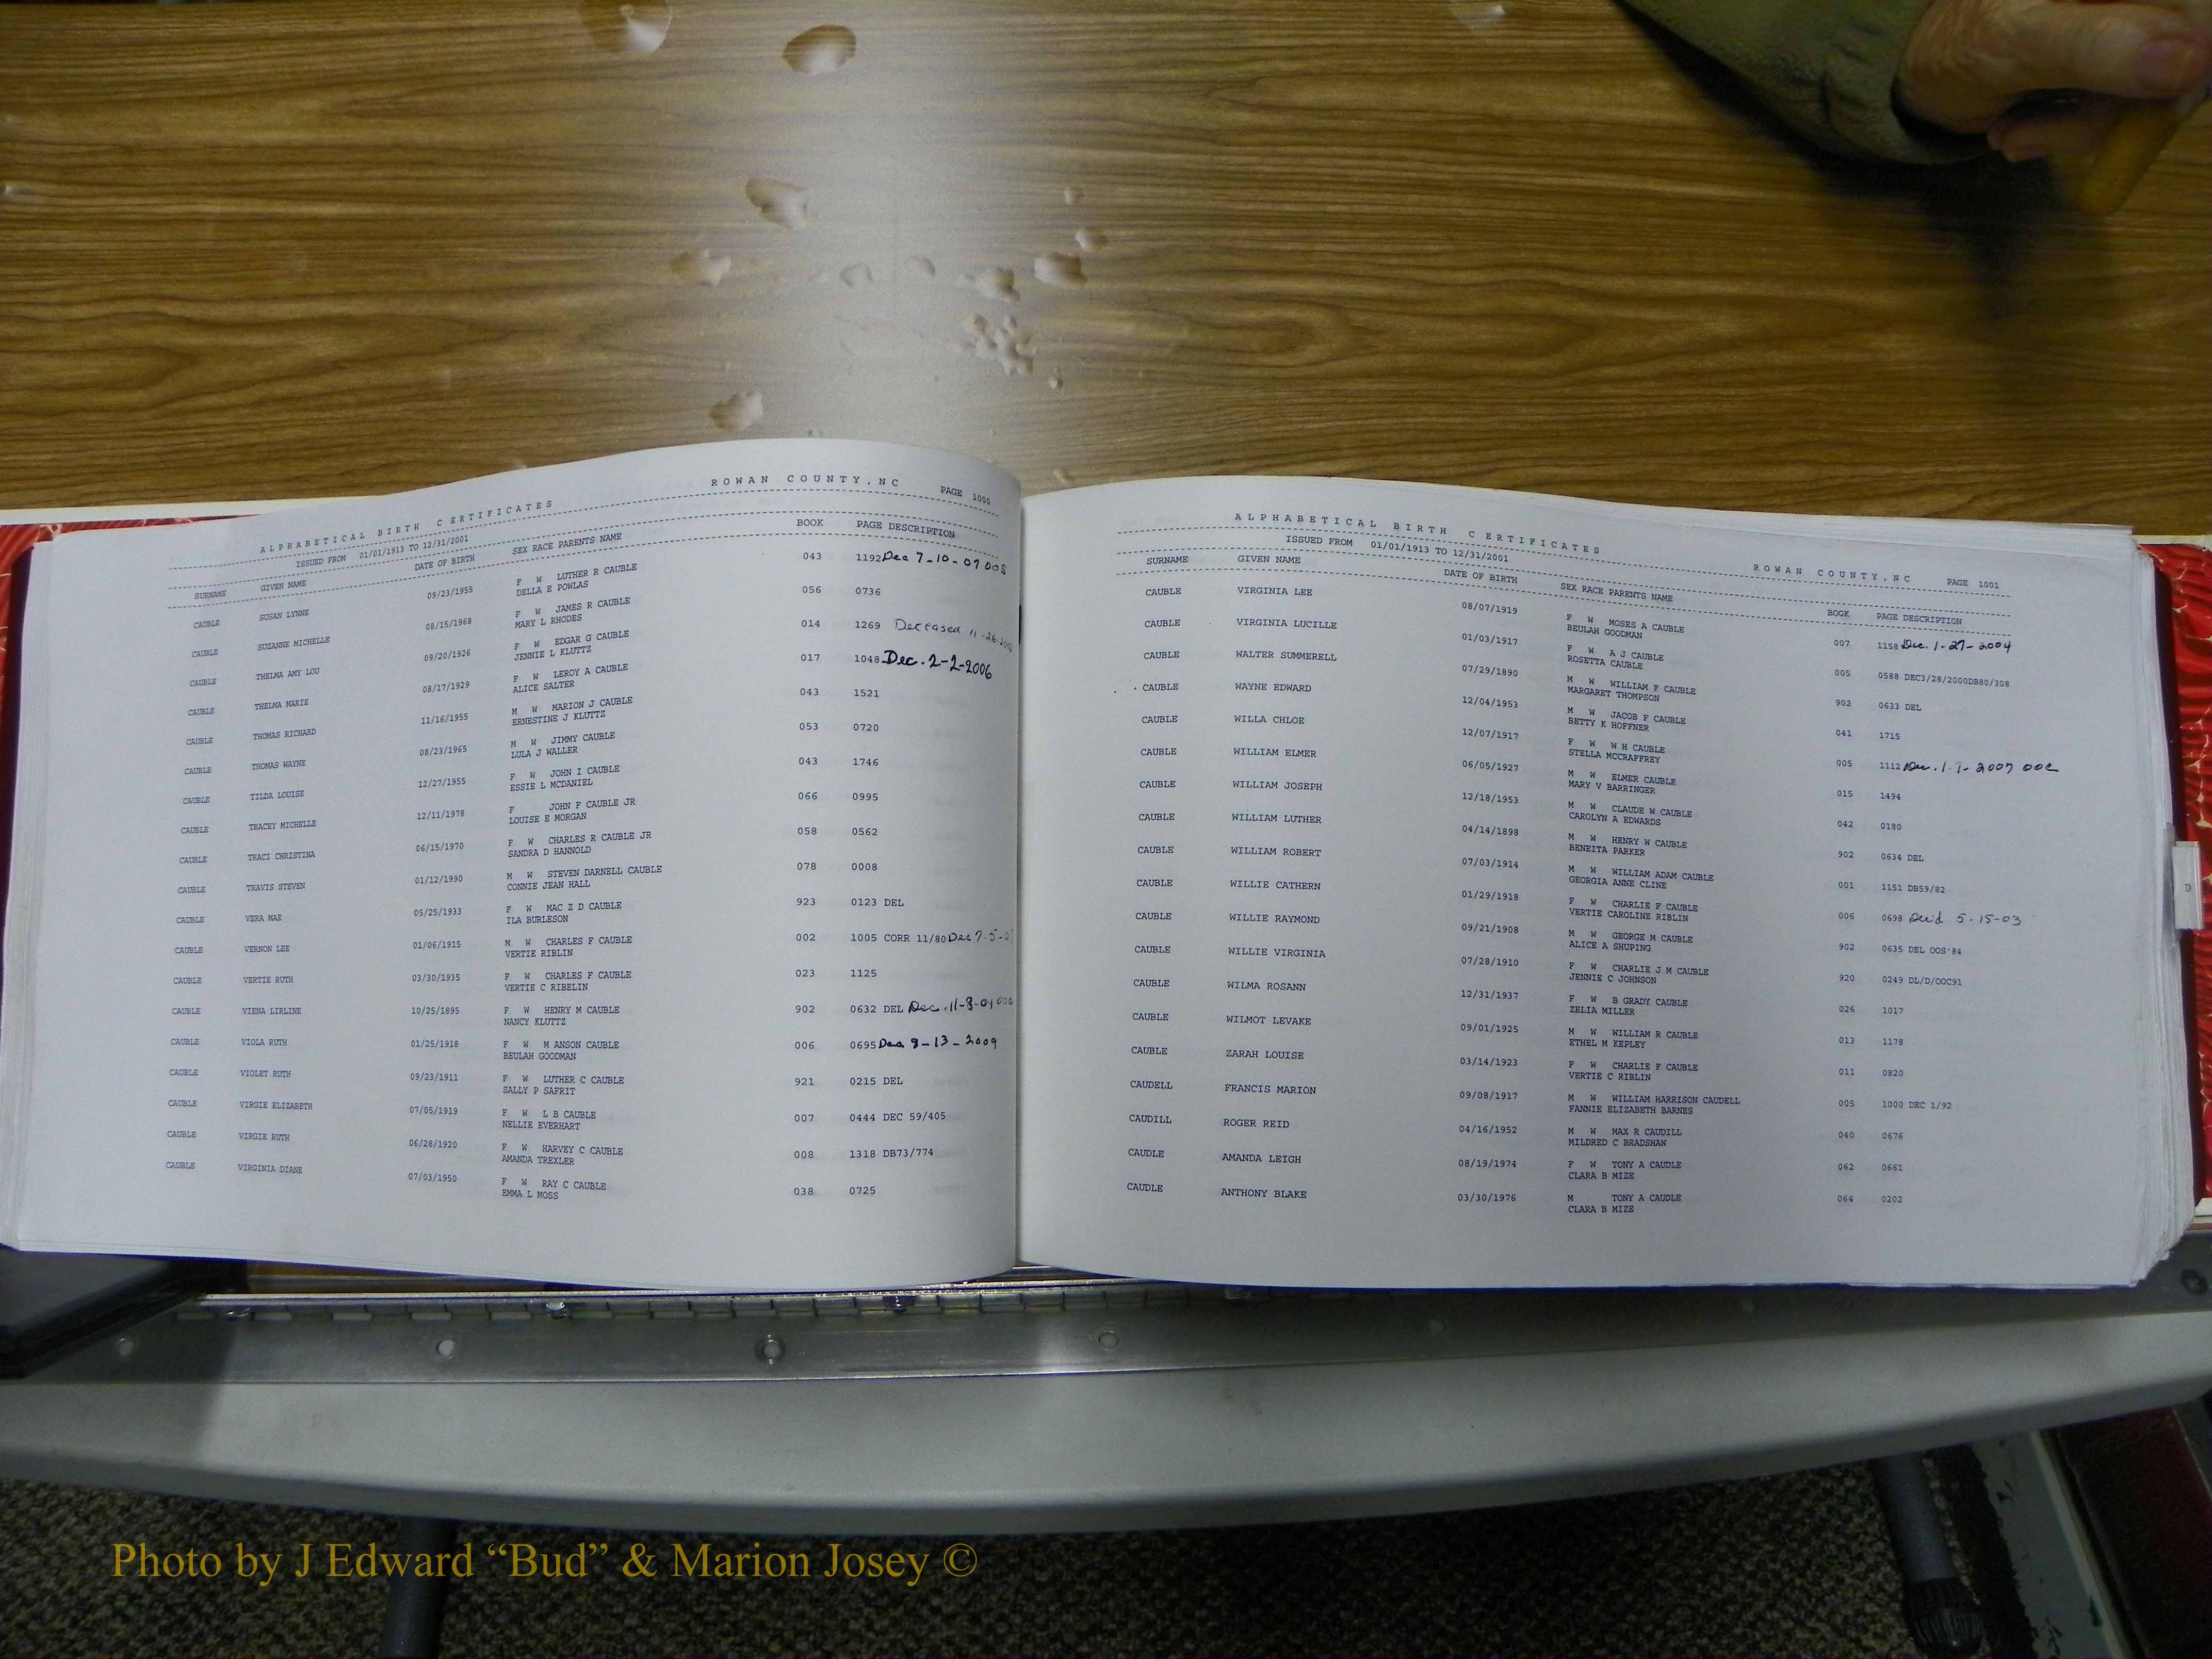 ALPHABETICAL BIRTH CERTIFICATES ROWAN COUNTY,NC PAGE 1000
ISSUED FROM 01/01/1913 TO 12/31/2001
SURNAME GIVEN NAME DATE OF BIRTH SEX RACE PARENTS NAME BOOK PAGE DESCRIPTION
CAUBLE SUSAN LYNNE 09/23/1955 F W LUTHER R CAUBLE 043 1192 Dec 7-10-07 OOS
DELLA E POWLAS
CAUBLE SUZANNE MICHELLE 08/15/1968 F W JAMES R CAUBLE 056 0736
MARY L RHODES
CAUBLE THELMA AMY LOU 09/20/1926 F W EDGAR G CAUBLE 014 1269 Deceased 11-26-2002
JENNIE L KLUTTZ
CAUBLE THELMA MARIE 08/17/1929 F W LEROY A CAUBLE 017 1048 Dec. 2-2-2006
ALICE SALTER
CAUBLE THOMAS RICHARD 11/16/1955 M W MARION J CAUBLE 043 1521
ERNESTINE J KLUTTZ
CAUBLE THOMAS WAYNE 08/23/1965 M W JIMMY CAUBLE 053 0720
LULA J WALLER
CAUBLE TILDA LOUISE 12/27/1955 F W JOHN I CAUBLE 043 1746
ESSIE L MCDANIEL
CAUBLE TRACEY MICHELLE 12/11/1978 F JOHN F CAUBLE JR 066 0995
LOUISE E MORGAN
CAUBLE TRACI CHRISTINA 06/15/1970 F W CHARLES R CAUBLE JR 058 0562
SANDRA D HANNOLD
CAUBLE TRAVIS STEVEN 01/12/1990 M W STEVEN DARNELL CAUBLE 078 0008
CONNIE JEAN HALL
CAUBLE VERA MAE 05/25/1933 F W MAC Z D CAUBLE 923 0123 DEL
ILA BURLESON
CAUBLE VERNON LEE 01/06/1915 M W CHARLES F CAUBLE 002 1005 CORR 11/80 Dec 7-5-
VERTIE RIBLIN
CAUBLE VERTIE RUTH 03/30/1935 F W CHARLES F CAUBLE 023 1125
VERTIE C RIBELIN
CAUBLE VIENA LIRLINE 10/25/1895 F W HENRY M CAUBLE 902 0632 DEL Dec. 11-8-04
NANCY KLUTTZ
CAUBLE VIOLA RUTH 01/25/1918 F W M ANSON CAUBLE 006 0695 Dec. 8-13-2009
BEULAH GOODMAN
CAUBLE VIOLET RUTH 09/23/1911 F W LUTHER C CAUBLE 921 0215 DEL
SALLY P SAFRIT
CAUBLE VIRGIE ELIZABETH 07/05/1919 F W L B CAUBLE 007 0444 DEC 59/405
NELLIE EVERHART
CAUBLE VIRGIE RUTH 06/28/1920 F W HARVEY C CAUBLE 008 1318 DB73/774
AMANDA TREXLER
CAUBLE VIRGINIA DIANE 07/03/1950 F W RAY C CAUBLE 038 0725
EMMA L MOSS
ALPHABETICAL BIRTH CERTIFICATES ROWAN COUNTY,NC PAGE 1001
ISSUED FROM 01/01/1913 TO 12/31/2001
SURNAME GIVEN NAME DATE OF BIRTH SEX RACE PARENTS NAME BOOK PAGE DESCRIPTION
CAUBLE VIRGINIA LEE 08/07/1919 F W MOSES A CAUBLE 007 1158 Dec. 1-27-2004
BEULAH GOODMAN
CAUBLE VIRGINIA LUCILLE 01/03/1917 F W A J CAUBLE 005 0588 DEC3/28/2000DB80/308
ROSETTA CAUBLE
CAUBLE WALTER SUMMERELL 07/29/1890 M W WILLIAM F CAUBLE 902 0633 DEL
MARGARET THOMPSON
CAUBLE WAYNE EDWARD 12/04/1953 M W JACOB F CAUBLE 041 1715
BETTY K HOFFNER
CAUBLE WILLA CHLOE 12/07/1917 F W W H CAUBLE 005 1112 Dec. 1-7-2007 OOC
STELLA MCCRAFFREY
CAUBLE WILLIAM ELMER 06/05/1927 M W ELMER CAUBLE 015 1494
MARY V BARRINGER
CAUBLE WILLIAM JOSEPH 12/18/1953 M W CLAUDE W CAUBLE 042 0180
CAROLYN A EDWARDS
CAUBLE WILLIAM LUTHER 04/14/1898 M W HENRY W CAUBLE 902 0634 DEL
BENEITA PARKER
CAUBLE WILLIAM ROBERT 07/03/1914 M W WILLIAM ADAM CAUBLE 001 1151 DB59/82
GEORGIA ANNE CLINE
CAUBLE WILLIE CATHERN 01/29/1918 F W CHARLIE F CAUBLE 006 0698 Dec'd 5-15-03
VERTIE CAROLINE RIBLIN
CAUBLE WILLIE RAYMOND 09/21/1908 M W GEORGE M CAUBLE 902 0635 DEL OOS'84
ALICE A SHUPING
CAUBLE WILLIE VIRGINIA 07/28/1910 F W CHARLIE J M CAUBLE 920 0249 DL/D/OOC91
JENNIE C JOHNSON
CAUBLE WILMA ROSANN 12/31/1937 F W B GRADY CAUBLE 026 1017
ZELIA MILLER
CAUBLE WILMOT LEVAKE 09/01/1925 M W WILLIAM R CAUBLE 013 1178
ETHEL M KEPLEY
CAUBLE ZARAH LOUISE 03/14/1923 F W CHARLIE F CAUBLE 011 0820
VERTIE C RIBLIN
CAUDELL FRANCIS MARION 09/08/1917 M W WILLIAM HARRISON CAUDELL 005 1000 DEC 1/92
FANNIE ELIZABETH BARNES
CAUDILL ROGER REID 04/16/1952 M W MAX R CAUDILL 040 0676
MILDRED C BRADSHAW
CAUDLE AMANDA LEIGH 08/19/1974 F W TONY A CAUDLE 062 0661
CLARA B MIZE
CAUDLE ANTHONY BLAKE 03/30/1976 M TONY A CAUDLE 064 0202
CLARA B MIZE
Photo by J Edward “Bud” & Marion Josey ©